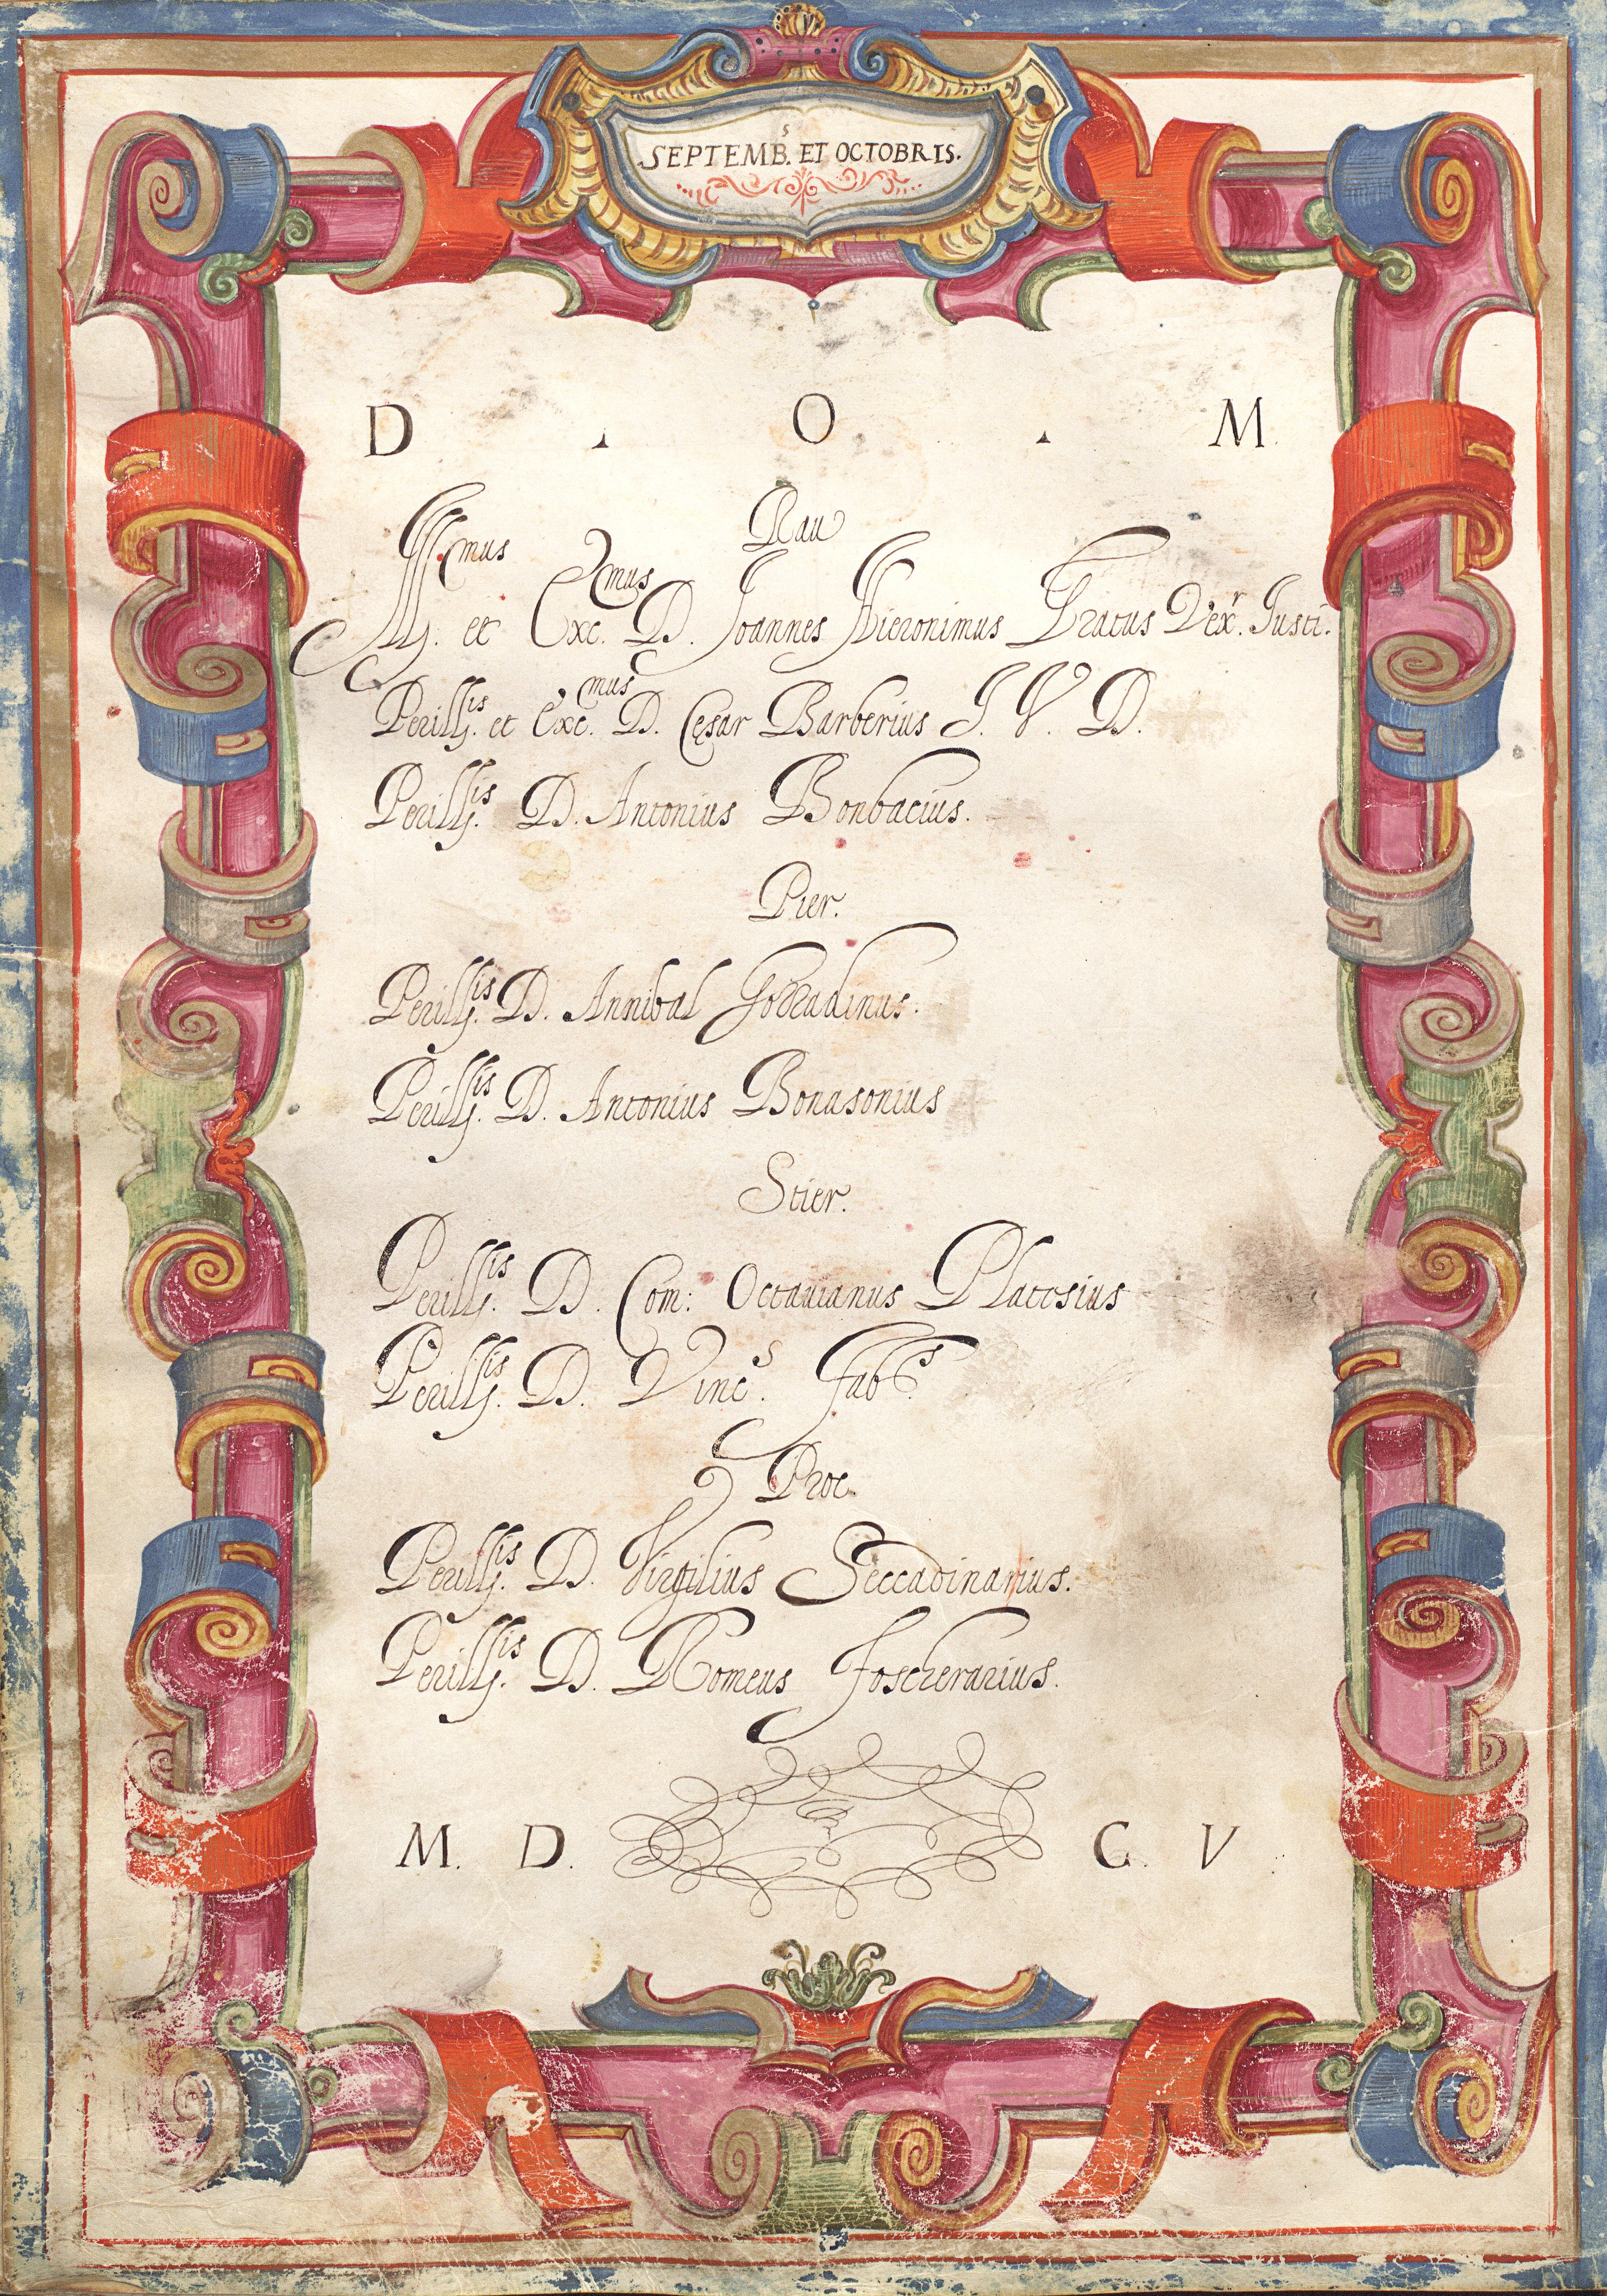 SEPTEMB.s ET OCTOBRIS.
D . O . M.
Rau
Ill.mus et Exc.mus D. Joannes Hieronimus Gratus Vex.r Justi.
Perill.is et Exc.mus D. Cęsar Barberius J. V. D.
Perill.is D. Antonius Bonbacius.
Pier.
Perill.is D. Annibal Gozzadinus.
Perill.is D. Antonius Bonasonius
Stier.
Perill.is D. Com: Octauianus Platesius
Perill.is D. Vinc.s Fab.s
Proc.
Perill.is D. Virgilius Seccadinarius.
Perill.is D. Romeus Foscherarius.
M. D. C. V